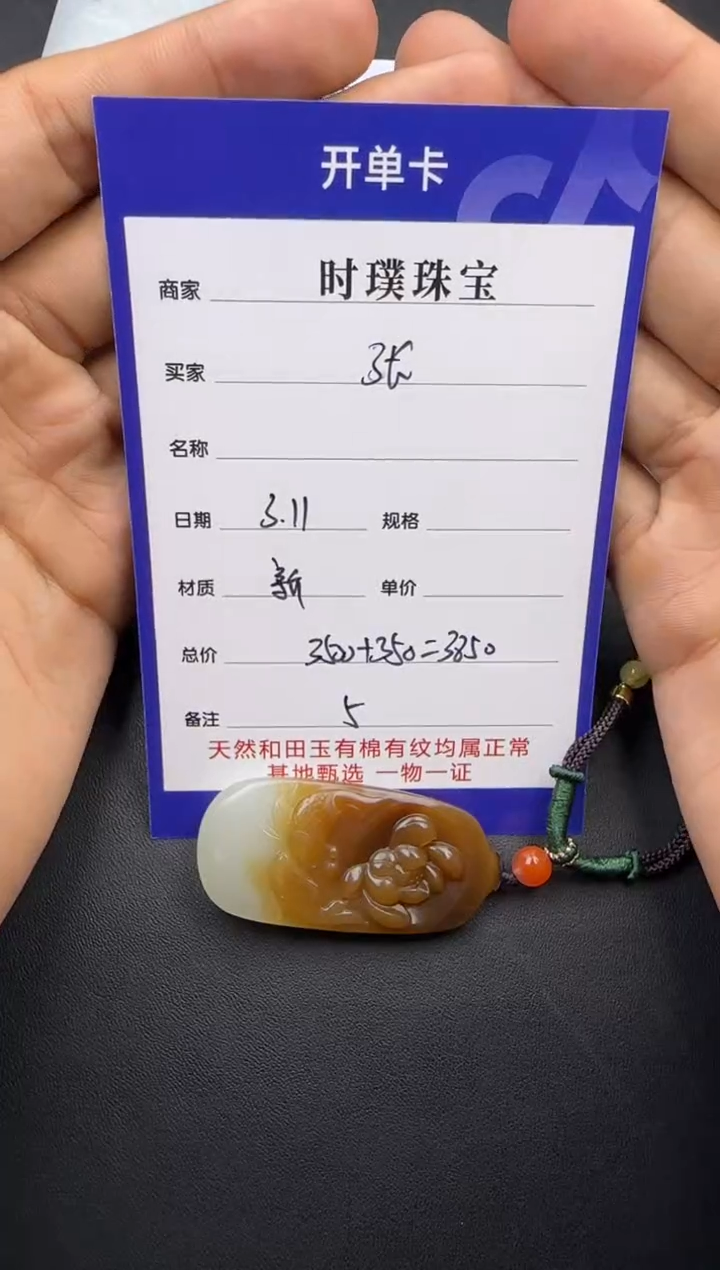 开单卡
商家 时璞珠宝
买家 张
名称
日期 3.11 规格
材质 新 单价
总价 3500+350=3850
备注 5
天然和田玉有棉有纹均属正常
基地甄选 一物一证